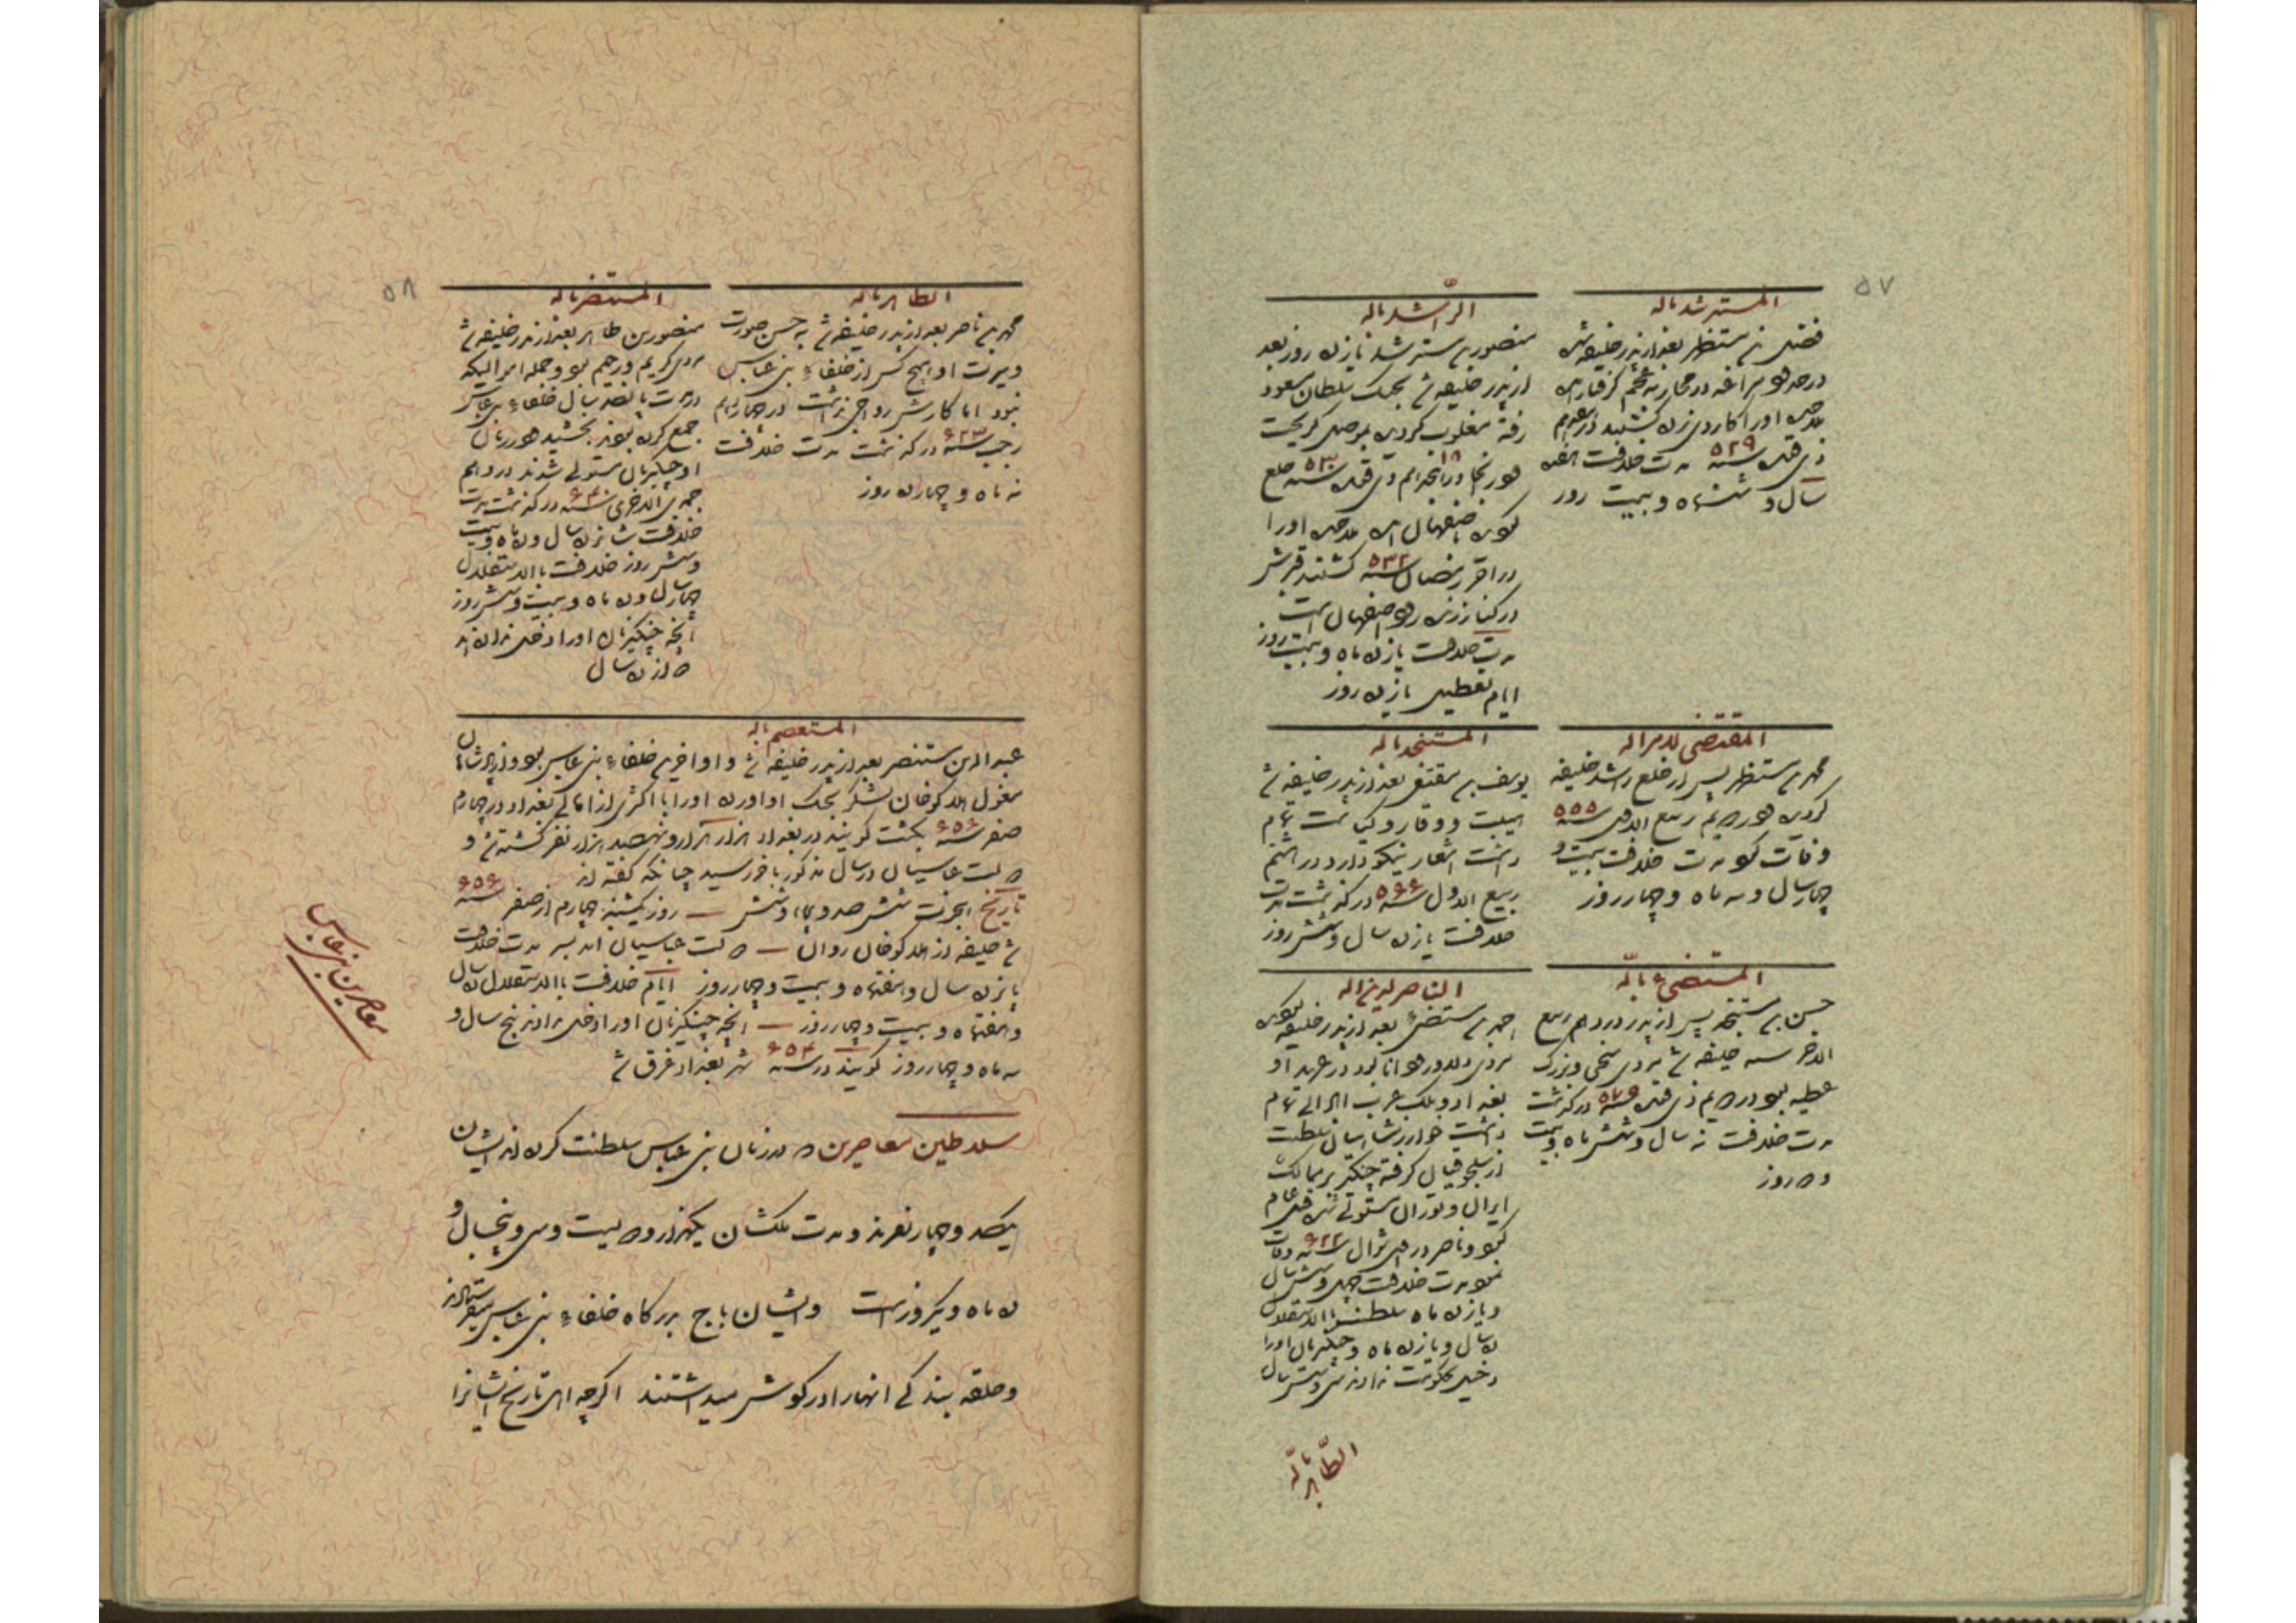 ۵۷
المسترشد بالله
فضل بن مستظهر بعد از پدر خلیفه شد
در حدود مراغه در محاربه عجم گرفتار آمد
ملاحده او را کارد زده کشتند در هفدهم
ذی قعده سنه ۵۲۹ مدت خلافت هفده
سال و ششماه و بیست روز
الرّاشد بالله
منصور بن مسترشد یازده روز بعد
از پدر خلیفه شد بجنگ سلطان مسعود
رفته مغلوب گردیده بموصل گریخت
و در آنجا در ۱۸ ذی قعده سنه ۵۳۰ خلع
اصفهان آمد ملاحده او را
در آخر رمضان سنه ۵۳۲ کشتند قبرش
در کنار زنده رود اصفهان است
مدت خلافت یازده ماه و بیست روز
ایام تعطیل یازده روز
المقتضی لامرالله
محمد بن مستظهر پس از خلع راشد خلیفه
گردید در دویم ربیع الاول سنه ۵۵۵
وفات نمود مدت خلافت بیست و
چهار سال و سه ماه و چهار روز
المستنجد بالله
یوسف بن مقتفی بعد از پدر خلیفه شد
هیبت و وقار و کیاست تمام
داشت اشعار نیکو دارد در هشتم
ربیع الاول سنه ۵۶۶ در گذشت مدت
خلافت یازده سال و شش روز
المستضیء بالله
حسن بن مستنجد پس از پدر در دهم ربیع
الاخر سنه خلیفه شد مردی سخی و بزرگ
عطیه بود در دویم ذی قعده سنه ۵۷۶ در گذشت
مدت خلافت نه سال و شش ماه و بیست
و دو روز
الناصر لدین الله
احمد بن مستضیء بعد از پدر خلیفه گردید
مردی دلاور و دانا بود در عهد او
بغداد و ملک عرب آبادانی تمام
داشت خوارزمشاهیان سلطنت
از سلجوقیان گرفته چنگیز بر ممالک
ایران و توران مستولی شد قتل عام
نمود و ناصر در اول شوال سنه ۶۲۲ وفات
نمود مدت خلافت چهل و شش سال
و یازده ماه سلطنت بالاستقلال
ده سال و یازده ماه و چنگیزیان او را
دخیل حکومت نداده سی و شش سال
الطّاهر بالله
۵۸
الطاهر بالله
محمد بن ناصر بعد از پدر خلیفه شد به حسن صورت
و سیرت او هیچ کس از خلفاء بنی عباس
نبود اما کارش رواجی نداشت در چهاردهم
رجب سنه ۶۲۳ در گذشت مدت خلافت
نه ماه و چهارده روز
المستنصر بالله
منصور بن طاهر بعد از پدر خلیفه شد
مردی کریم و رحیم بود و جمله اموالیکه
در مدت پانصد سال خلفاء بنی عباس
جمع کرده بودند بخشید در زمان
او چنگیزیان مستولی شدند در دهم
جمادی الاخری سنه ۶۴۰ در گذشت مدت
خلافت شانزده سال و ده ماه و بیست
و شش روز خلافت بالاستقلال
چهار سال و ده ماه و بیست و شش روز
آنچه چنگیزیان او را دخل نداده اند
دوازده سال
المستعصم بالله
عبدالله بن مستنصر بعد از پدر خلیفه شد و او آخرین خلفاء بنی عباس بود و از پادشاهان
مغول هلاکوخان لشکر بجنگ او آورده او را با اکثری از اهالی بغداد در چهارم
صفر سنه ۶۵۶ بکشت گویند در بغداد هزار هزار و نهصد هزار نفر کشته شد و
دولت عباسیان در سال مذکور بآخر رسید چنانکه گفته اند
تاریخ هجرت ششصد و پنجاه و شش — روز یکشنبه چهارم از صفر سنه ۶۵۶
شد خلیفه نزد هلاکوخان روان — دولت عباسیان آمد بسر مدت خلافت
پانزده سال و هفتماه و بیست و چهار روز ایام خلافت بالاستقلال ده سال
و هفتماه و بیست و چهار روز — آنچه چنگیزیان او را دخل ندادند پنج سال و
سه ماه و چهار روز گویند در سنه ۶۵۴ شهر بغداد غرق شد
معاصرین بنی عباس
سلاطین معاصرین که در زمان بنی عباس سلطنت کرده اند ایشان
یکصد و چهار نفرند و مدت ملکشان یکهزار و دویست و سی و پنجسال و
ده ماه و یکروز است و ایشان باج بدرگاه خلفاء بنی عباس میفرستادند
و حلقه بندگی آنها را در گوش میداشتند اگرچه اهل تاریخ ایشانرا